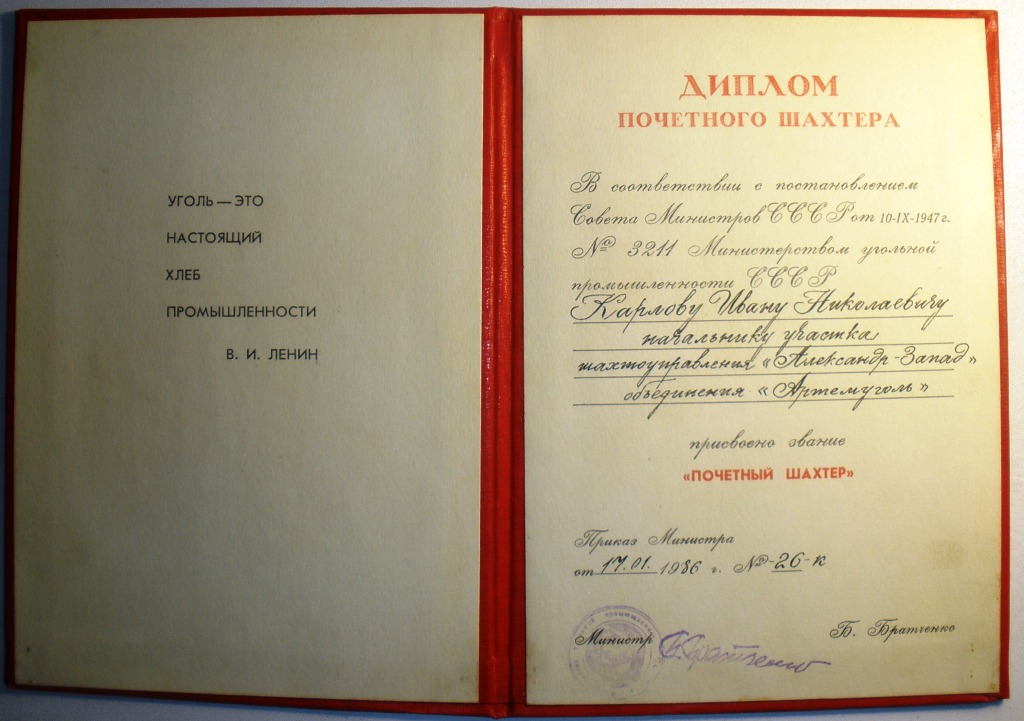 УГОЛЬ — ЭТО
НАСТОЯЩИЙ
ХЛЕБ
ПРОМЫШЛЕННОСТИ
В. И. ЛЕНИН
ДИПЛОМ
ПОЧЕТНОГО ШАХТЕРА
В соответствии с постановлением
Совета Министров СССР от 10-IX-1947 г.
№ 3211 Министерством угольной
промышленности СССР
Карлову Ивану Николаевичу
начальнику участка
шахтоуправления «Александр-Запад»
объединения «Артемуголь»
присвоено звание
«ПОЧЕТНЫЙ ШАХТЕР»
Приказ Министра
от 17.01. 1986 г. № -26-к
Министр Б. Братченко
Б. Братченко